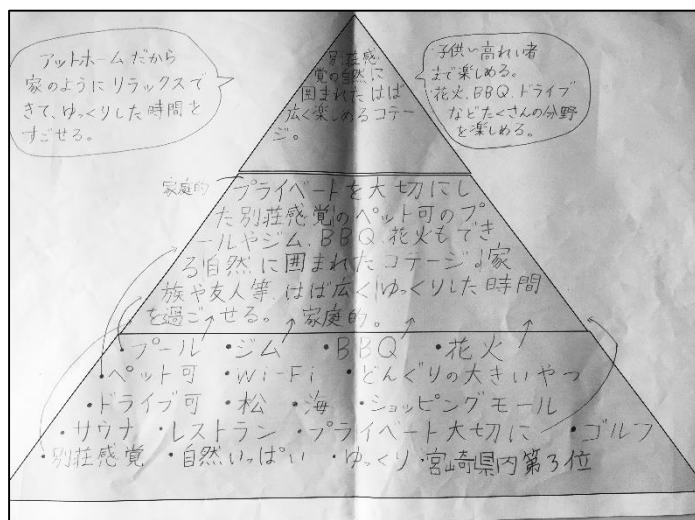 アットホームだから
家のようにリラックスで
きて、ゆっくりした時間を
すごせる。
別荘感
覚の自然に
囲まれた はば
広く楽しめるコテ
ージ。
子供い高れい者
まで楽しめる。
花火、BBQ、ドライブ
などたくさんの分野
を楽しめる。
家庭的
プライベートを大切にし
た別荘感覚のペット可のプ
ールやジム、BBQ、花火もでき
る自然に囲まれたコテージ。家
族や友人等、はば広くゆっくりした時間
を過ごせる。 家庭的。
・プール ・ジム ・BBQ ・花火
・ペット可 ・Wi-Fi ・どんぐりの大きいやつ
・ドライブ可 ・松 ・海 ・ショッピングモール
・サウナ ・レストラン ・プライベート大切に ・ゴルフ
・別荘感覚 ・自然いっぱい ・ゆっくり ・宮崎県内第3位